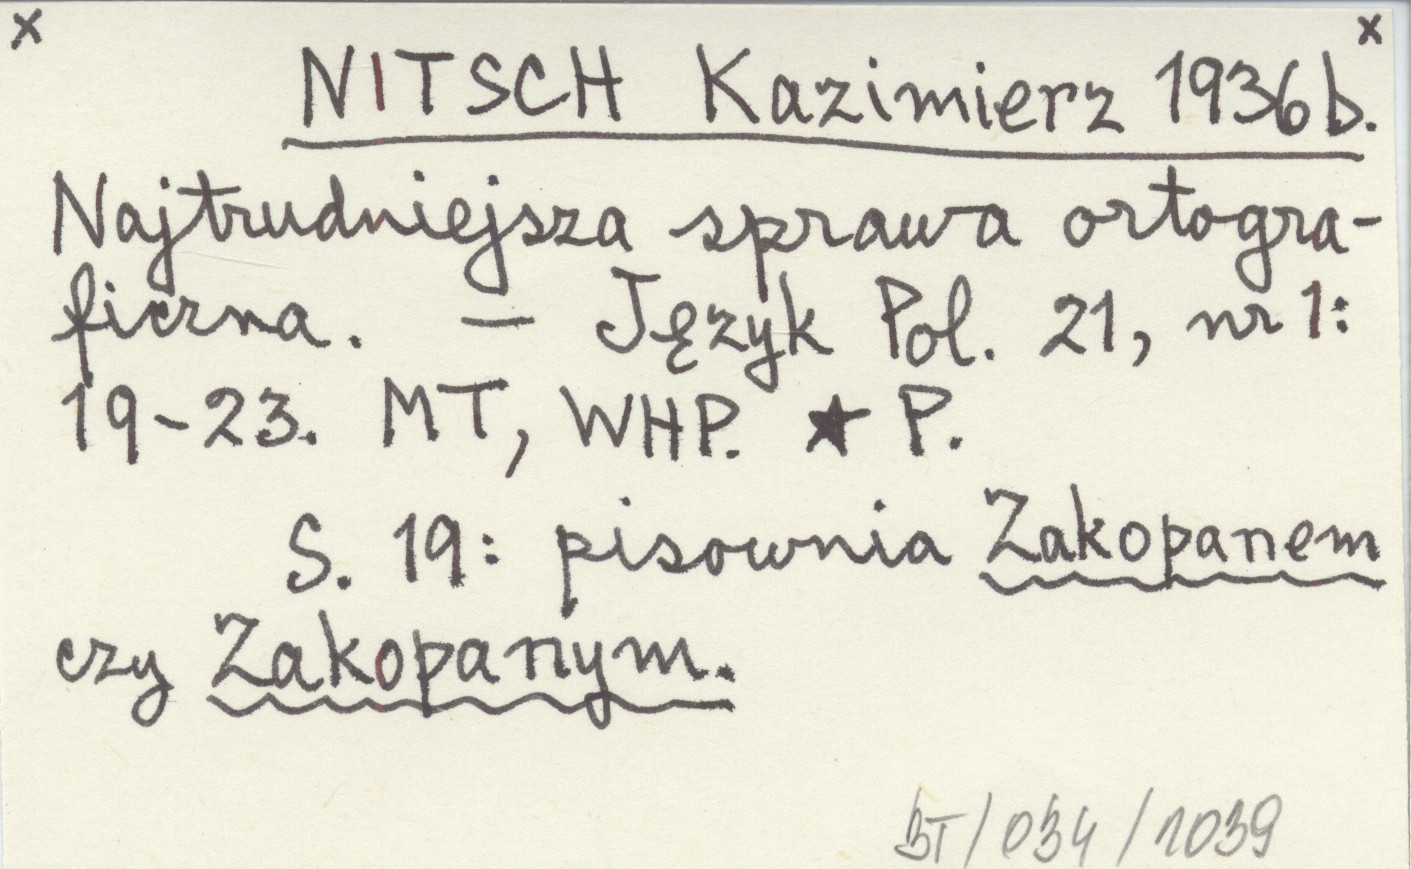 x x
NITSCH Kazimierz 1936b.
Najtrudniejsza sprawa ortogra-
ficzna. – Język Pol. 21, nr 1:
19-23. MT, WHP. ★ P.
S. 19: pisownia Zakopanem
czy Zakopanym.
BT/034/1039